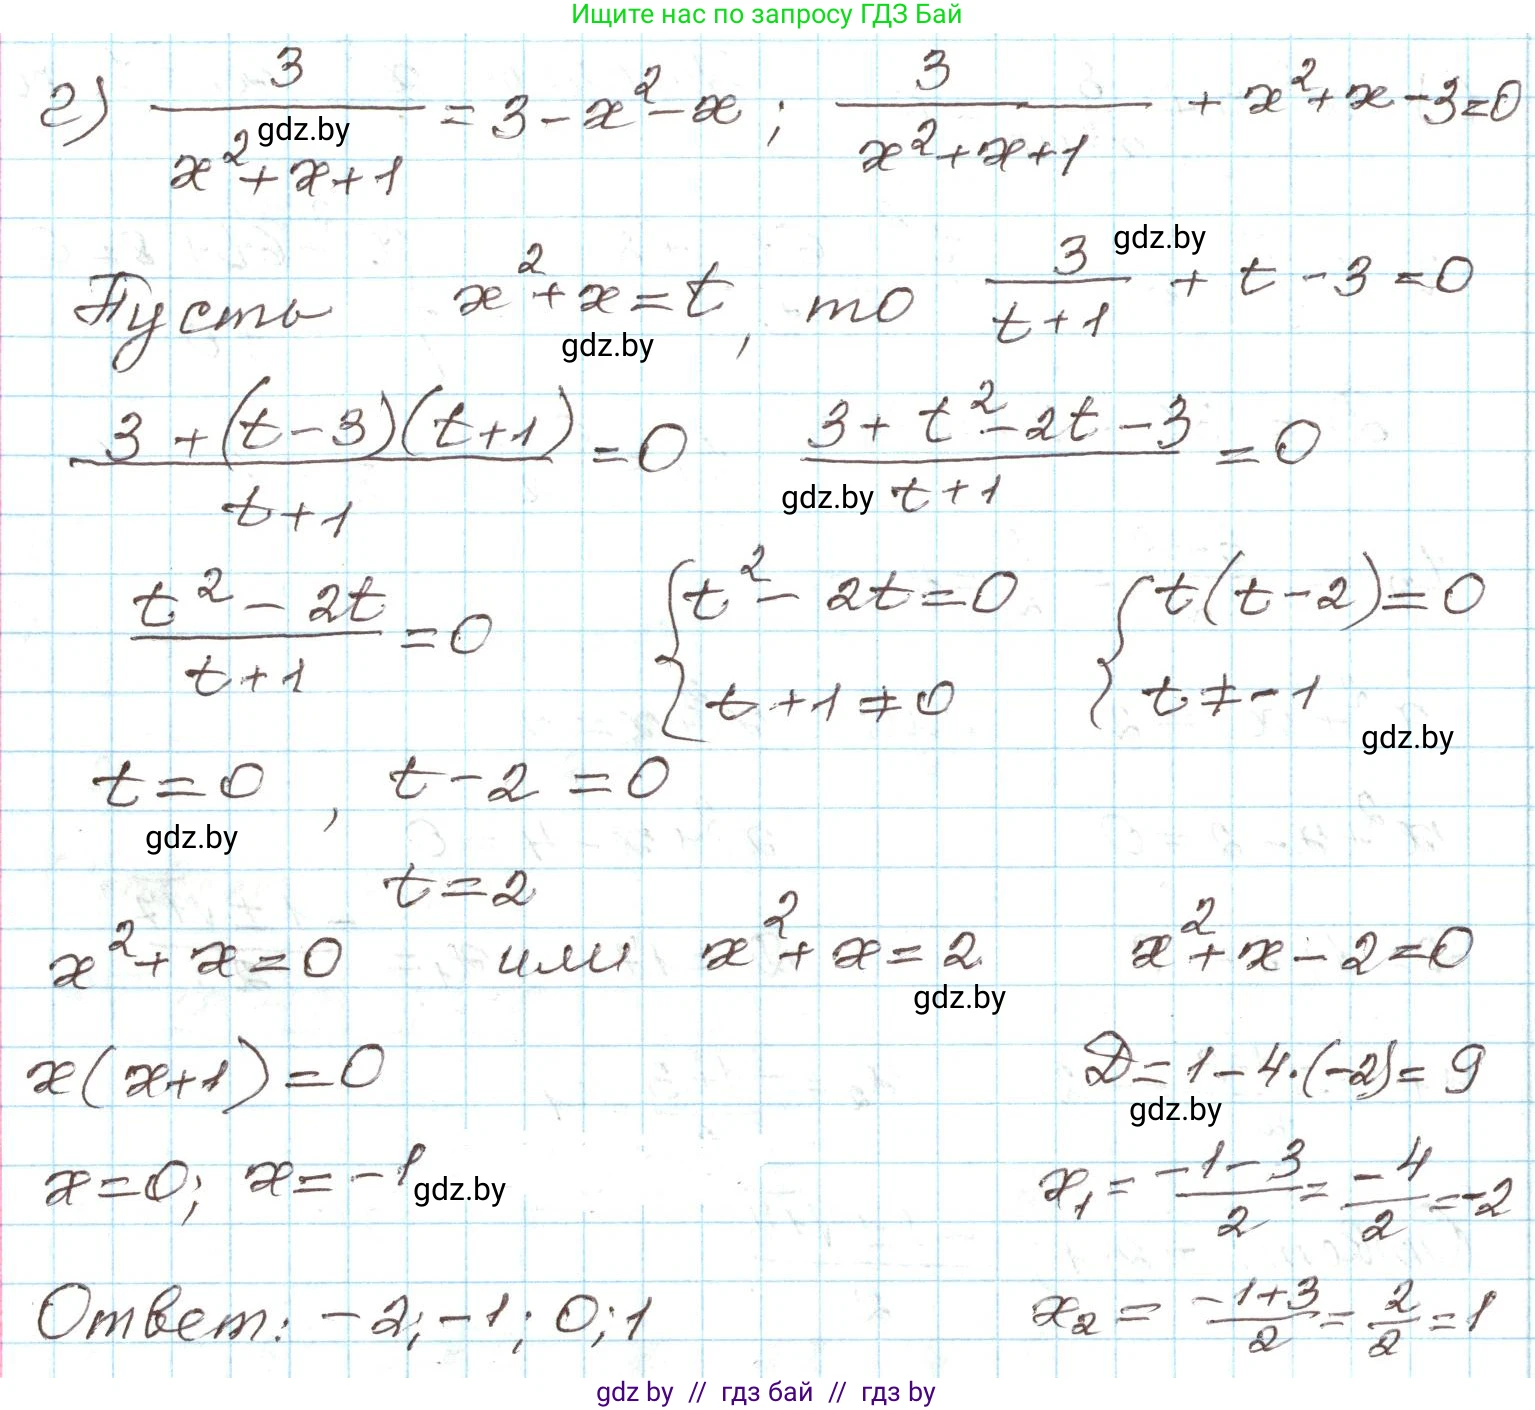 Ищите нас по запросу ГДЗ Бай
г) 3/(x²+x+1) = 3-x²-x; 3/(x²+x+1) + x²+x-3=0
gdz.by
gdz.by
Пусть x²+x=t, то 3/(t+1) + t-3=0
gdz.by
(3+(t-3)(t+1))/(t+1) =0 (3+t²-2t-3)/(t+1) =0
gdz.by
(t²-2t)/(t+1) =0 { t²-2t=0 { t(t-2)=0
t+1≠0 t≠-1
gdz.by
t=0, t-2=0
gdz.by
t=2
x²+x=0 или x²+x=2 x²+x-2=0
gdz.by
x(x+1)=0 D=1-4·(-2)=9
gdz.by
x=0; x=-1 x₁=(-1-3)/2=-4/2=-2
gdz.by
Ответ: -2; -1; 0; 1 x₂=(-1+3)/2=2/2=1
gdz by // гдз бай // gdz by